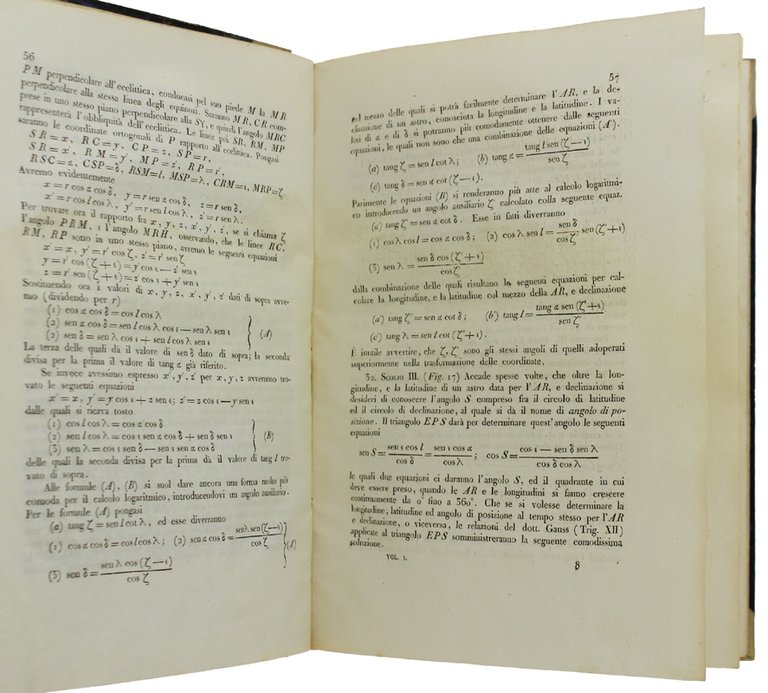 56
PM perpendicolare all'ecclittica, conducasi pel suo piede M la MR
perpendicolare alla stessa linea degli equinozi. Saranno MR, CR com-
prese in uno stesso piano perpendicolare alla S♈, e quindi l'angolo MRC
rappresenterà l'obbliquità dell'ecclittica. Le linee poi SR, RM, MP
saranno le coordinate ortogonali di P rapporto all'ecclittica. Pongasi
SR = x, RC = y, CP = z, SP = r,
SR = x', RM = y', MP = z', RP = r',
RSC = α, CSP = δ, RSM = l, MSP = λ, CRM = ι, MRP = ζ.
Avremo evidentemente
x = r cos α cos δ, y = r sen α cos δ, z = r sen δ
x' = r cos l cos λ, y' = r sen l cos λ, z' = r sen λ.
Per trovare ora il rapporto fra x, y, z, x', y', z', se si chiama ζ
l'angolo PRM, ι l'angolo MRH, osservando, che le linee RC,
RM, RP sono in uno stesso piano, avremo le seguenti equazioni
x = x, y' = r' cos ζ, z' = r' sen ζ
y = r' cos (ζ + ι) = y' cos ι — z' sen ι
z = r' sen (ζ + ι) = z' cos ι + y' sen ι
Sostituendo ora i valori di x, y, z, x', y', z' dati di sopra avre-
mo (dividendo per r)
(1) cos α cos δ = cos l cos λ
(2) sen α cos δ = sen l cos λ cos ι — sen λ sen ι
(3) sen δ = sen λ cos ι + sen l cos λ sen ι } (A)
La terza delle quali dà il valore di sen δ dato di sopra; la seconda
divisa per la prima il valore di tang α già riferito.
Se invece avessimo espresso x', y', z' per x, y, z avremmo tro-
vato le seguenti equazioni
x' = x, y' = y cos ι + z sen ι; z' = z cos ι — y sen ι
dalle quali si ricava tosto
(1) cos l cos λ = cos α cos δ
(2) sen l cos λ = cos ι sen α cos δ + sen δ sen ι
(3) sen λ = cos ι sen δ — sen ι sen α cos δ } (B)
delle quali la seconda divisa per la prima dà il valore di tang l tro-
vato di sopra.
Alle formule (A), (B) si suol dare ancora una forma molto più
comoda per il calcolo logaritmico, introducendovi un angolo ausiliario.
Per le formule (A) pongasi
(a) tang ζ = sen l cot λ, ed esse diverranno
(1) cos α cos δ = cos l cos λ; (2) sen α cos δ = sen λ sen (ζ—ι) / cos ζ
(3) sen δ = sen λ cos (ζ—ι) / cos ζ } (A)
57
col mezzo delle quali si potrà facilmente determinare l'AR, e la de-
clinazione di un astro, conosciuta la longitudine e la latitudine. I va-
lori di α e di δ si potranno più comodamente ottenere dalle seguenti
equazioni, le quali non sono che una combinazione delle equazioni (A').
(a) tang ζ = sen l cot λ; (b) tang α = tang l sen (ζ—ι) / sen ζ
(c) tang δ = sen α cot (ζ—ι).
Parimente le equazioni (B) si renderanno più atte al calcolo logaritmi-
co introducendo un angolo ausiliario ζ' calcolato colla seguente equaz.
(a) tang ζ' = sen α cot δ. Esse in fatti diverranno
(1) cos λ cos l = cos α cos δ; (2) cos λ sen l = sen δ / cos ζ' sen (ζ'+ι)
(3) sen λ = sen δ cos (ζ'+ι) / cos ζ'
dalla combinazione delle quali risultano le seguenti equazioni per cal-
colare la longitudine, e la latitudine col mezzo della AR, e declinazione
(a') tang ζ' = sen α cot δ; (b') tang l = tang α sen (ζ'+ι) / sen ζ'
(c') tang λ = sen l cot (ζ'+ι).
È inutile avvertire, che ζ, ζ' sono gli stessi angoli di quelli adoperati
superiormente nella trasformazione delle coordinate.
32. Scolio III. (Fig. 17) Accade spesse volte, che oltre la lon-
gitudine, e la latitudine di un astro data per l'AR, e declinazione si
desideri di conoscere l'angolo S compreso fra il circolo di latitudine
ed il circolo di declinazione, al quale si dà il nome di angolo di po-
sizione. Il triangolo EPS darà per determinare quest'angolo le seguenti
equazioni
sen S = sen ι cos l / cos δ = sen ι cos α / cos λ; cos S = cos ι — sen δ sen λ / cos δ cos λ
le quali due equazioni ci daranno l'angolo S, ed il quadrante in cui
deve essere preso, quando le AR e le longitudini si fanno crescere
continuamente da 0° fino a 360°. Che se si volesse determinare la
longitudine, latitudine ed angolo di posizione al tempo stesso per l'AR
e declinazione, o viceversa, le relazioni del dott. Gauss (Trig. XII)
applicate al triangolo EPS somministreranno la seguente comodissima
soluzione.
VOL. I. 8